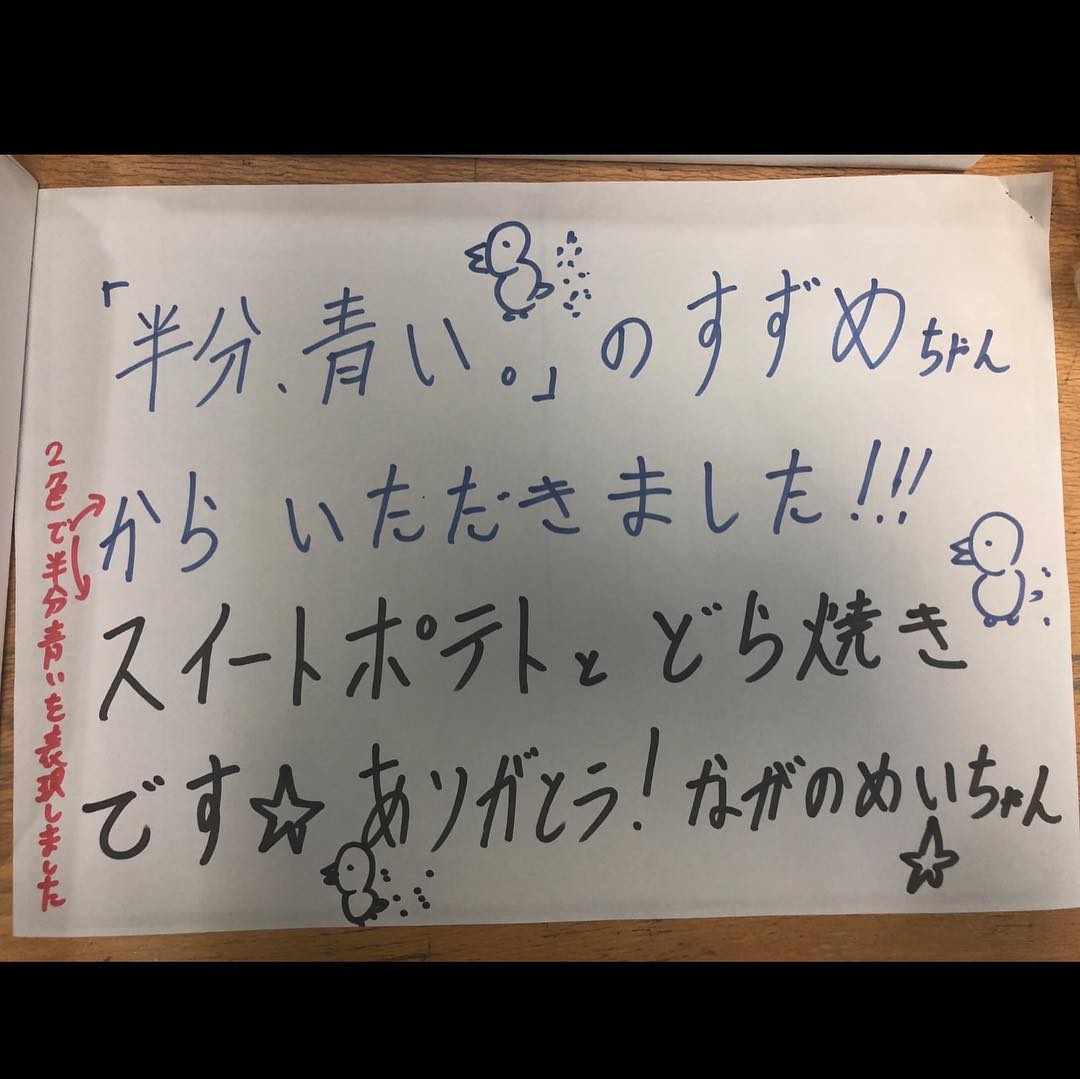 「半分、青い。」のすずめちゃん
からいただきました!!!
スイートポテトとどら焼き
です☆ありがとう!ながのめいちゃん
☆
2色で半分青いを表現しました